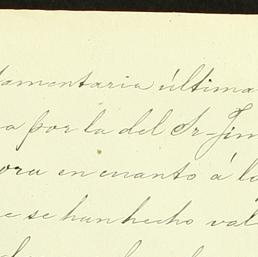 tamentaria última
a por la del Sr. Jim
ora en cuanto á la
e se han hecho val